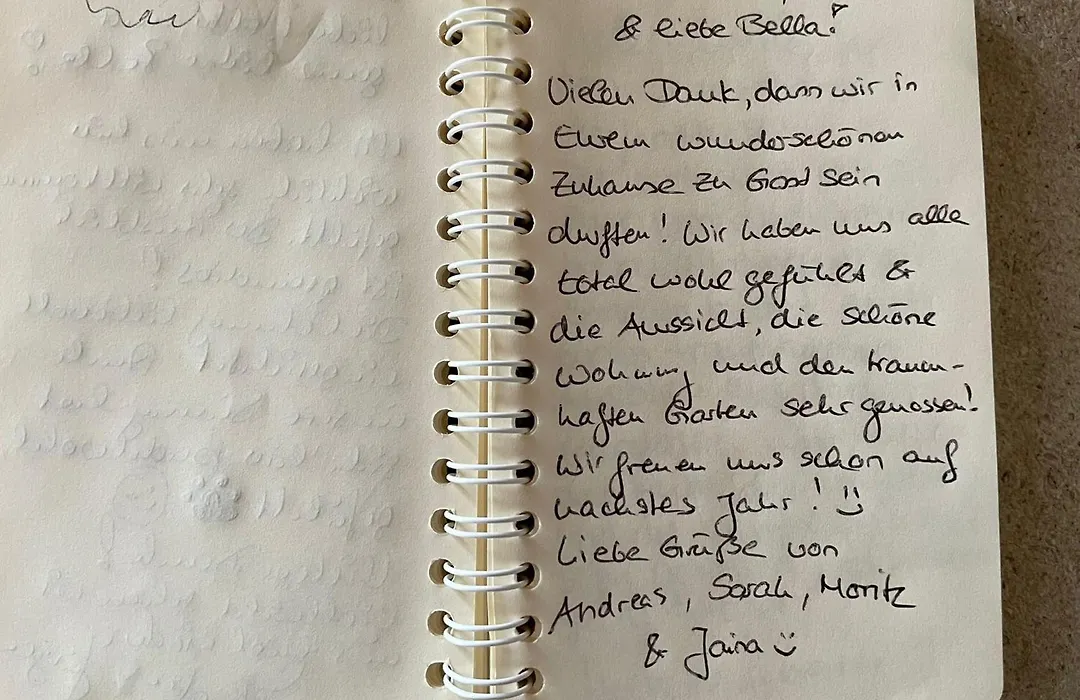 & liebe Bella!
Vielen Dank, dass wir in
Eurem wunderschönen
Zuhause zu Gast sein
durften! Wir haben uns alle
total wohl gefühlt &
die Aussicht, die schöne
Wohnung und den traum-
haften Garten sehr genossen!
Wir freuen uns schon auf
nächstes Jahr! :)
Liebe Grüße von
Andreas, Sarah, Moritz
& Jaina :)